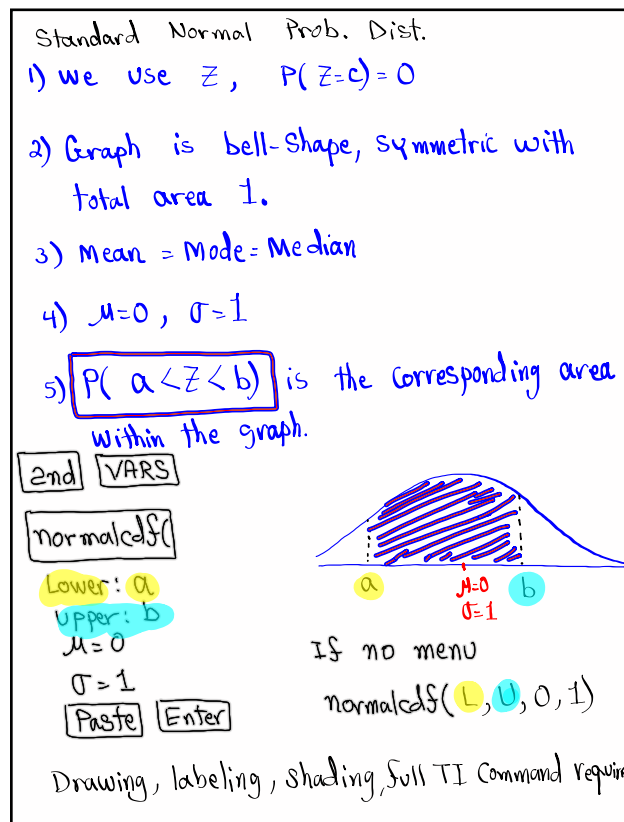 Standard Normal Prob. Dist.
1) We use Z, P(Z=c)=0
2) Graph is bell-Shape, symmetric with
total area 1.
3) Mean = Mode = Median
4) μ=0, σ=1
5) P( a < Z < b) is the corresponding area
within the graph.
2nd VARS
normalcdf(
Lower: a
upper: b
μ = 0
σ = 1
Paste Enter
a μ=0 b
σ=1
If no menu
normalcdf( L, U, 0, 1)
Drawing, labeling, shading, full TI Command requir